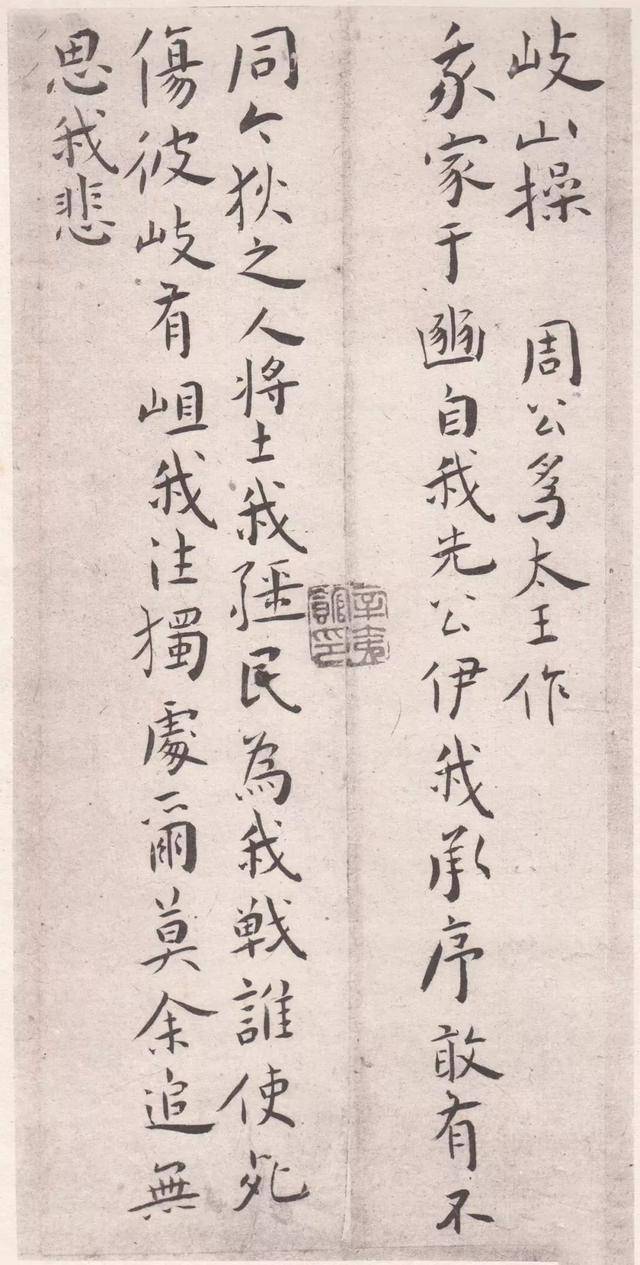 岐山操　周公爲太王作
我家于豳自我先公伊我承序敢有不
同今狄之人将土我疆民為我戦誰使死
傷彼岐有岨我往獨處爾莫余追無
思我悲
辛夷館印